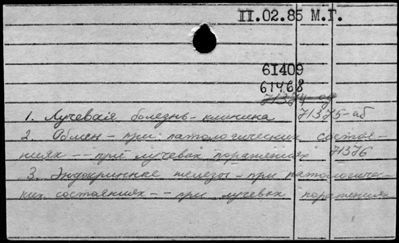 II.02.85 М.Г.
61409
61468
71374-аб
1. Лучевая болезнь - клиника 71375-аб
2. Обмен - при патологических состоя-
ниях - - при лучевых поражениях 71376
3. Эндокринные железы - при патологичес-
ких состояниях - - при лучевых поражениях